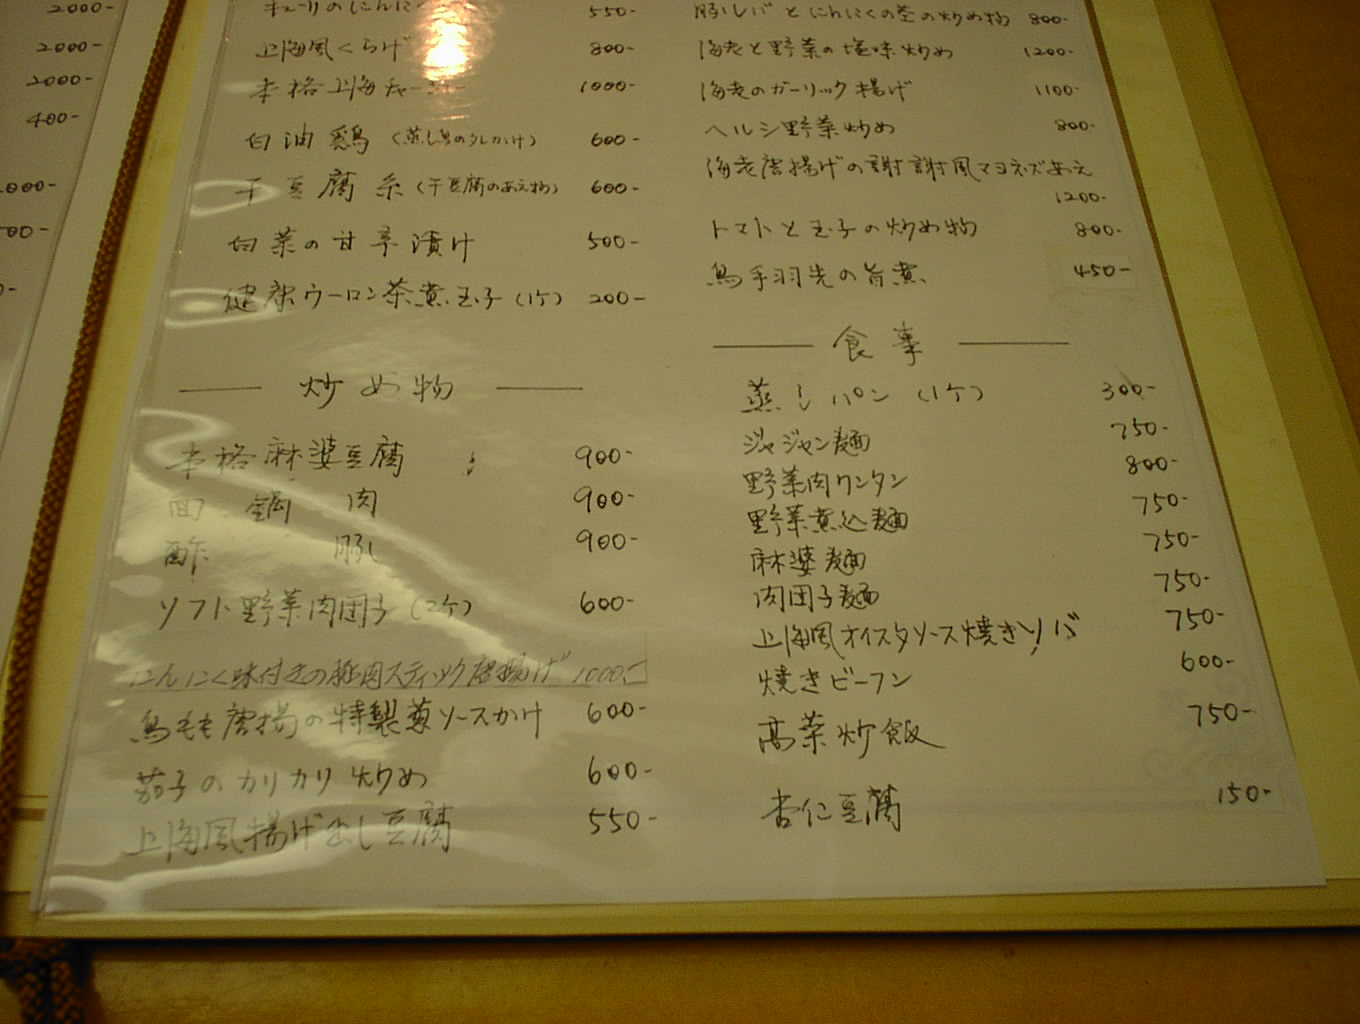 2000-
2000-
2000-
400-
000-
00-
0-
キューリのにんにく 550-
上海風くらげ 800-
本格上海チャーシュー 1000-
白油鶏（蒸し鳥のタレかけ） 600-
干豆腐糸（干豆腐のあえ物） 600-
白菜の甘辛漬け 500-
健康ウーロン茶煮玉子（1ケ） 200-
炒め物
本格麻婆豆腐 900-
回鍋肉 900-
酢豚 900-
ソフト野菜肉団子（2ケ） 600-
にんにく味付きの豚肉スティック唐揚げ 1000-
鳥もも唐揚の特製葱ソースかけ 600-
茄子のカリカリ炒め 600-
上海風揚げ出し豆腐 550-
豚レバとにんにくの茎の炒め物 800-
海老と野菜の塩味炒め 1200-
海老のガーリック揚げ 1100-
ヘルシ野菜炒め 800-
海老唐揚げの謝謝風マヨネズあえ
1200-
トマトと玉子の炒め物 800-
鳥手羽先の旨煮 450-
食事
蒸しパン（1ケ） 300-
ジャジャン麺 750-
野菜肉ワンタン 800-
野菜煮込麺 750-
麻婆麺 750-
肉団子麺 750-
上海風オイスタソース焼きソバ 750-
焼きビーフン 600-
高菜炒飯 750-
杏仁豆腐 150-